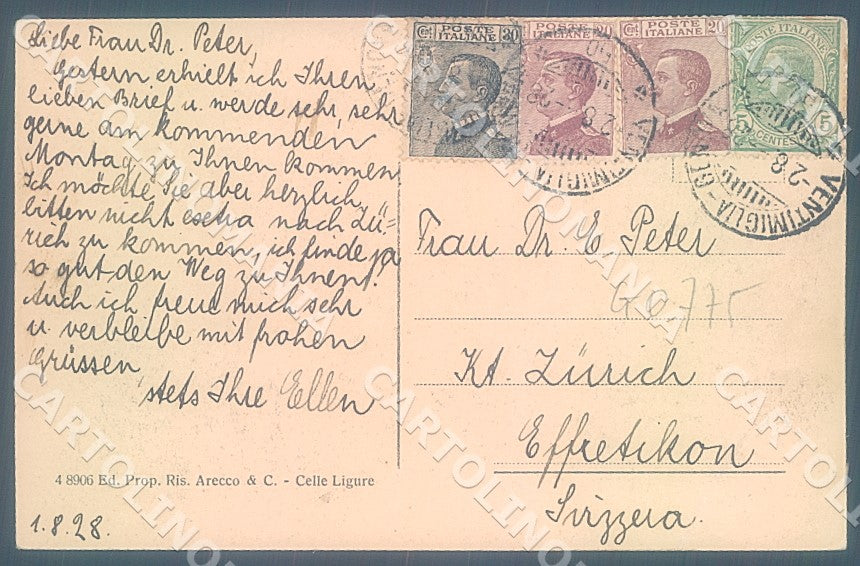 Liebe Frau Dr. Peter,
Gestern erhielt ich Ihren
lieben Brief u. werde sehr, sehr
gerne am kommenden
Montag zu Ihnen kommen
Ich möchte Sie aber herzlich
bitten nicht extra nach Zü=
rich zu kommen, ich finde ja
so gut den Weg zu Ihnen!
Auch ich freue mich sehr
u. verbleibe mit frohen
Grüssen
stets Ihre Ellen
4 8906 Ed. Prop. Ris. Arecco & C. - Celle Ligure
1.8.28.
POSTE ITALIANE
30
POSTE ITALIANE
POSTE ITALIANE
20
POSTE ITALIANE
5
CENTES
VENTIMIGLIA
VENTIMIGLIA
Frau Dr. E Peter
GC 775
Kt. Zürich
Effretikon
Svizzera.
CARTOLINOMANIA